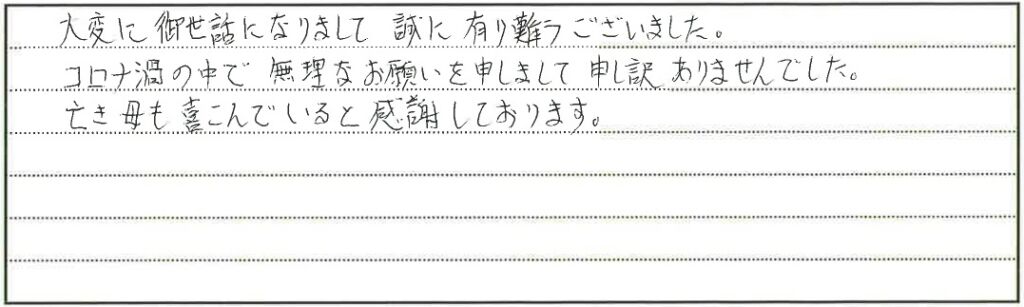 大変に御世話になりまして 誠に有り難うございました。
コロナ渦の中で無理なお願いを申しまして申し訳ありませんでした。
亡き母も喜こんでいると感謝しております。